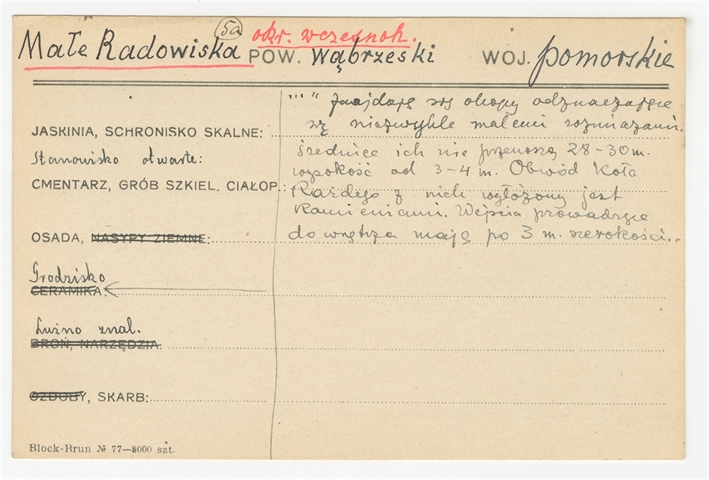 5a okr. wczesnoh.
Małe Radowiska POW. Wąbrzeski WOJ. pomorskie
..." znajdują się okopy odznaczające
JASKINIA, SCHRONISKO SKALNE: się niezwykle małemi rozmiarami.
Stanowisko otwarte: średnice ich nie przenoszą 28-30 m.
wysokość od 3-4 m. Obwód koła
CMENTARZ, GRÓB SZKIEL. CIAŁOP.: każdego z nich wyłożony jest
kamieniami. Wejścia prowadzące
OSADA, NASYPY ZIEMNE: do wnętrza mają po 3 m. szerokości...
Grodzisko
CERAMIKA:
Luźno znal.
BROŃ, NARZĘDZIA:
OZDOBY, SKARB:
Block-Brun № 77—8000 szt.